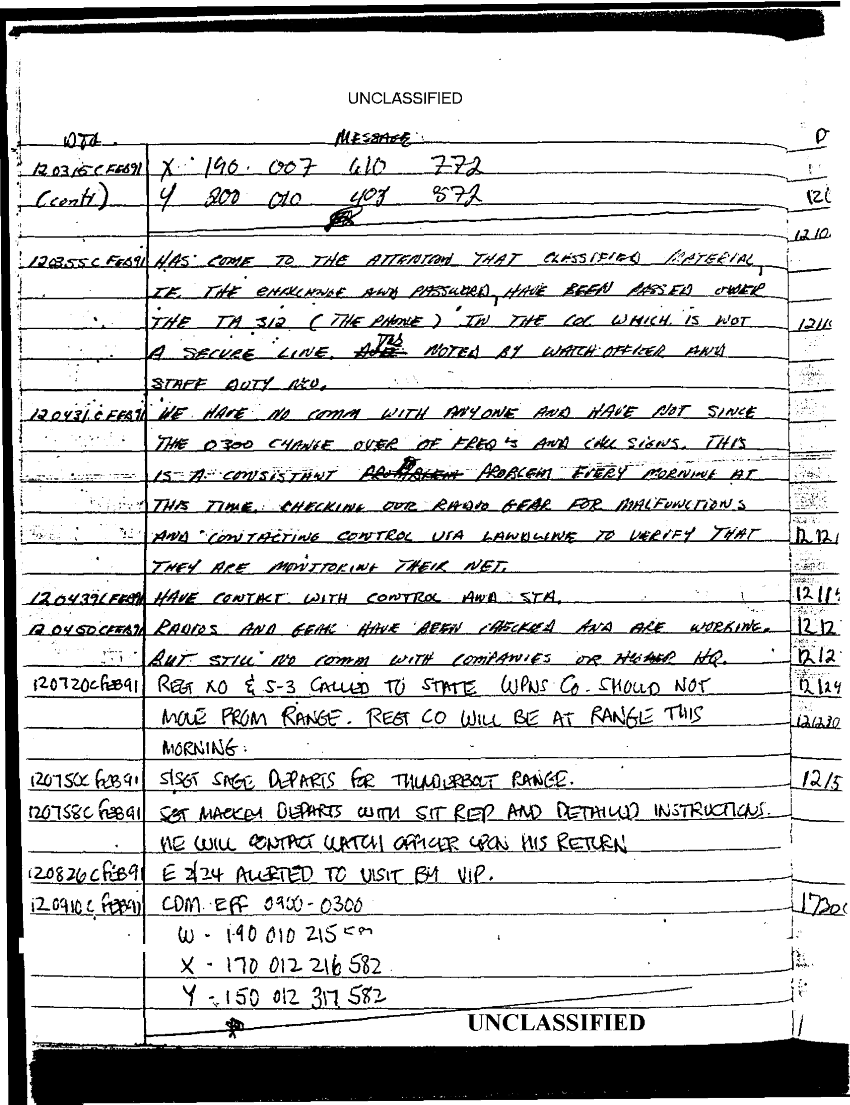 UNCLASSIFIED
DTG. MESSAGE
120315CFEB91 X 190. 007 610 772
(cont) Y 200 010 407 572
120355CFEB91 HAS COME TO THE ATTENTION THAT CLASSIFIED MATERIAL,
IE. THE CHALLANGE AND PASSWORD, HAVE BEEN PASSED OVER
THE TA 312 (THE PHONE) IN THE COC WHICH IS NOT
A SECURE LINE. NOTED BY WATCH OFFICER AND
STAFF DUTY NCO.
120431CFEB91 WE HAVE NO COMM WITH ANYONE AND HAVE NOT SINCE
THE 0300 CHANGE OVER OF FREQ'S AND CALL SIGNS. THIS
IS A CONSISTANT PROBLEM EVERY MORNING AT
THIS TIME. CHECKING OUR RADIO GEAR FOR MALFUNCTIONS
AND CONTACTING CONTROL VIA LANDLINE TO VERIFY THAT
THEY ARE MONITORING THEIR NET.
120439CFEB91 HAVE CONTACT WITH CONTROL AND STA.
120450CFEB91 RADIOS AND GEAR HAVE BEEN CHECKED AND ARE WORKING.
BUT STILL NO COMM WITH COMPANIES OR HIGHER HQ.
120720CFEB91 REGT XO & S-3 CALLED TO STATE WPNS CO. SHOULD NOT
MOVE FROM RANGE. REGT CO WILL BE AT RANGE THIS
MORNING.
120750CFEB91 S/SGT SAGE DEPARTS FOR THUNDERBOLT RANGE.
120758CFEB91 SGT DEPARTS WITH SIT REP AND DETAILED INSTRUCTIONS.
HE WILL CONTACT WATCH OFFICER UPON HIS RETURN
120826CFEB91 E 2/24 ALERTED TO VISIT BY VIP.
120910CFEB91 CDM EFF 0900-0300
W - 190 010 215
X - 170 012 216 582
Y - 150 012 317 582
UNCLASSIFIED